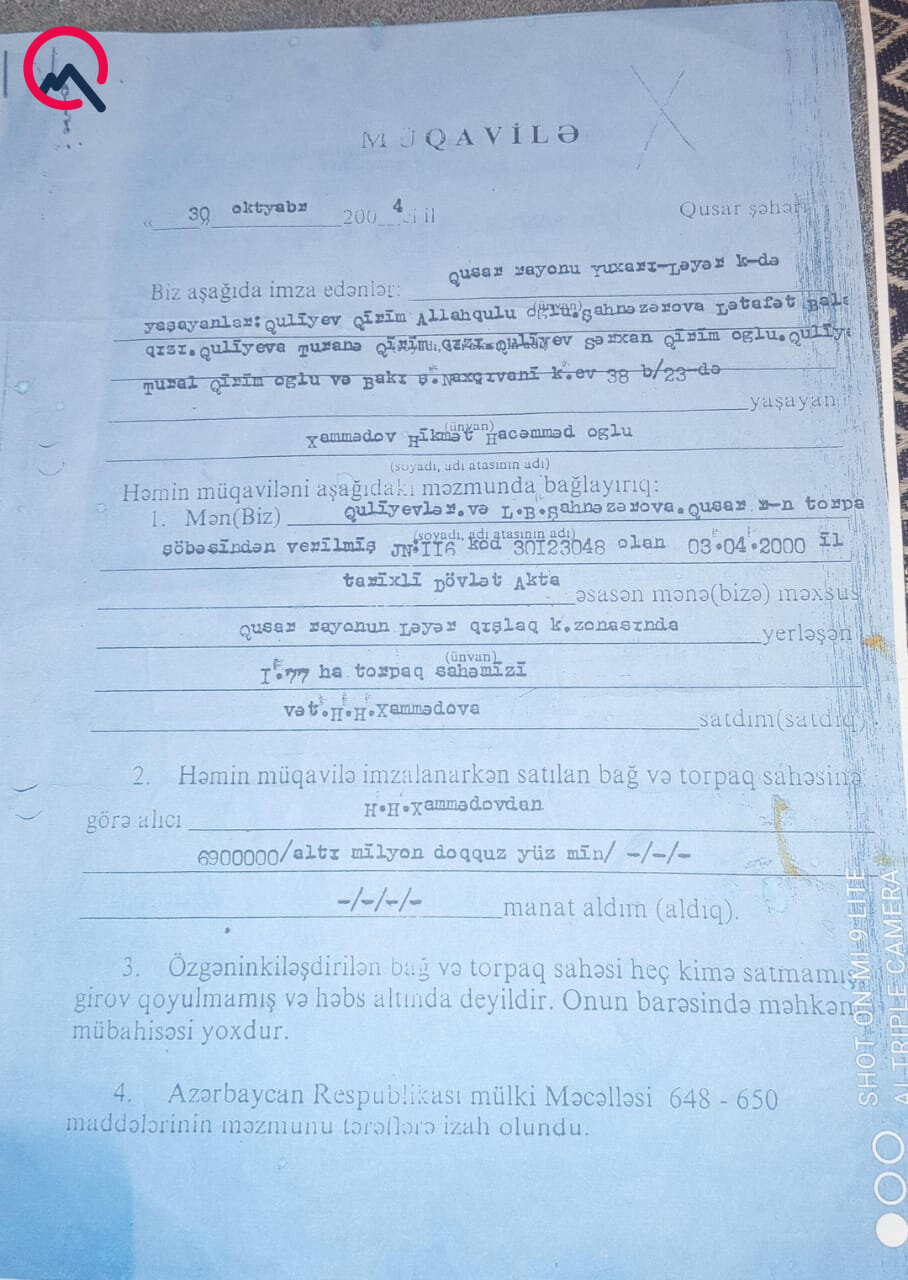 MÜQAVİLƏ
« 30 oktyabr 200 4 ci il Qusar şəhəri
Biz aşağıda imza edənlər: Qusar rayonu Yuxarı-Ləyər k-də
yaşayanlar:Quliyev Qirim Allahqulu oğlu.Şahnəzərova Lətafət
(ünvan)
qızı.Quliyeva Turanə Qirim qızı.Quliyev Sərxan Qirim oglu.
Tural Qirim oglu və Bakı ş.Naxçıvani k.ev 38 b/23-də
yaşayan
(ünvan)
Xammədov Hikmət Hacəmməd oglu
(soyadı, adı atasının adı)
Həmin müqaviləni aşağıdakı məzmunda bağlayırıq:
1. Mən(Biz) Quliyevlər.və L.B.Şahnəzərova.Qusar r-n torpa
(soyadı, adı atasının adı)
şöbəsindən verilmiş JN:II6 kod 30I23048 olan 03.04.2000 il
tarixli Dövlət Akta
əsasən mənə(bizə) məxsus
Qusar rayonun Ləyər qışlaq k.zonasında
yerləşən
(ünvan)
I.77 ha torpaq sahəmizi
vət.H.H.Xammədova
satdım(satdıq).
2. Həmin müqavilə imzalanarkən satılan bağ və torpaq sahəsinə
görə alıcı H.H.Xammədovdan
6900000/altı milyon doqquz yüz min/ -/-/-
-/-/-/- manat aldım (aldıq).
3. Özgəninkiləşdirilən bağ və torpaq sahəsi heç kimə satmamış,
girov qoyulmamış və həbs altında deyildir. Onun barəsində məhkəm
mübahisəsi yoxdur.
4. Azərbaycan Respublikası mülki Məcəlləsi 648 - 650
maddələrinin məzmunu tərəflərə izah olundu.
SHOT ON MI 9 LITE
AI TRIPLE CAMERA